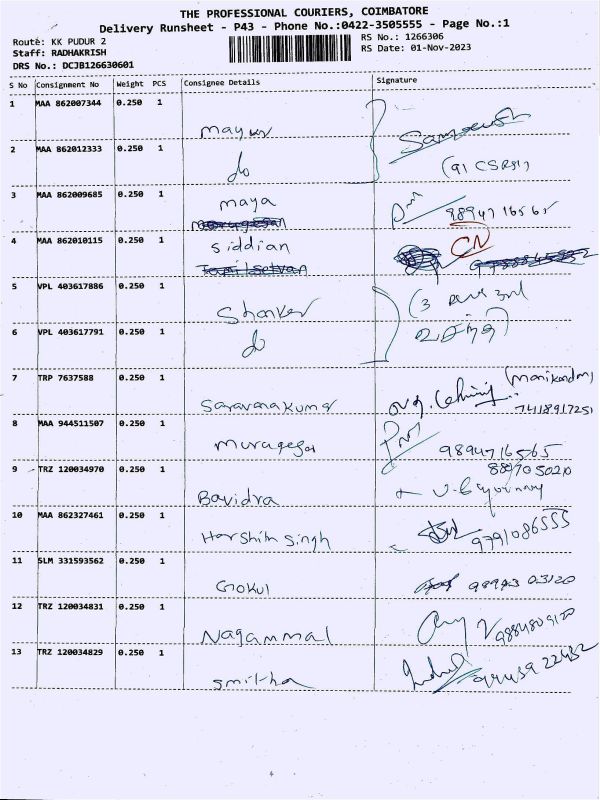 THE PROFESSIONAL COURIERS, COIMBATORE
Delivery Runsheet - P43 - Phone No.:0422-3505555 - Page No.:1
Route: KK PUDUR 2 RS No.: 1266306
Staff: RADHAKRISH RS Date: 01-Nov-2023
DRS No.: DCJB126630601
S No Consignment No Weight PCS Consignee Details Signature
1 MAA 862007344 0.250 1 mayur
2 MAA 862012333 0.250 1 do
3 MAA 862009685 0.250 1 maya 9894716565
4 MAA 862010115 0.250 1 Siddian CN
5 VPL 403617886 0.250 1 Shanker
6 VPL 403617791 0.250 1 do
7 TRP 7637588 0.250 1 Saravanakumar (Manikandan) 7418917251
8 MAA 944511507 0.250 1 Murugesan 9894716565
9 TRZ 120034970 0.250 1 Bavidra
10 MAA 862327461 0.250 1 Harshith Singh 9791086555
11 SLM 331593562 0.250 1 Gokul
12 TRZ 120034831 0.250 1 Nagammal 9884809120
13 TRZ 120034829 0.250 1 Smitha